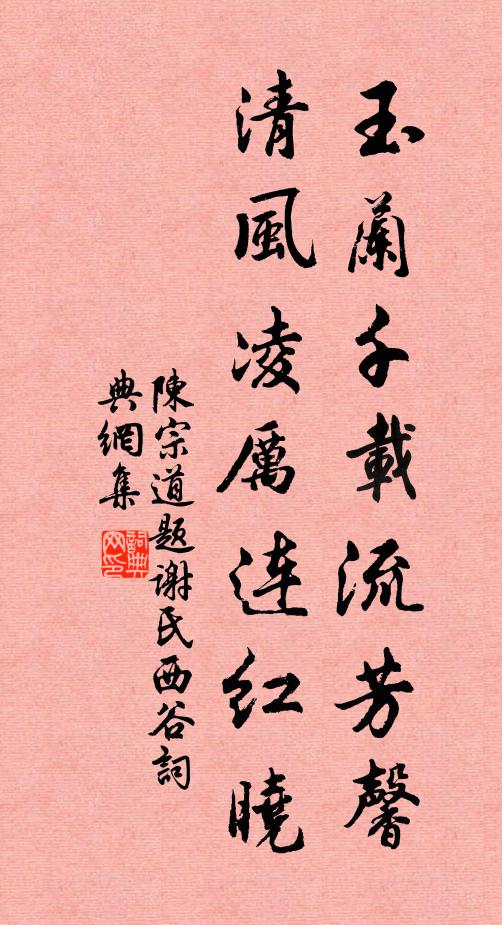 玉蘭千載流芳馨
清風凌厲連紅曉
陳宗道題謝氏西谷詞
典網集
詞典网印